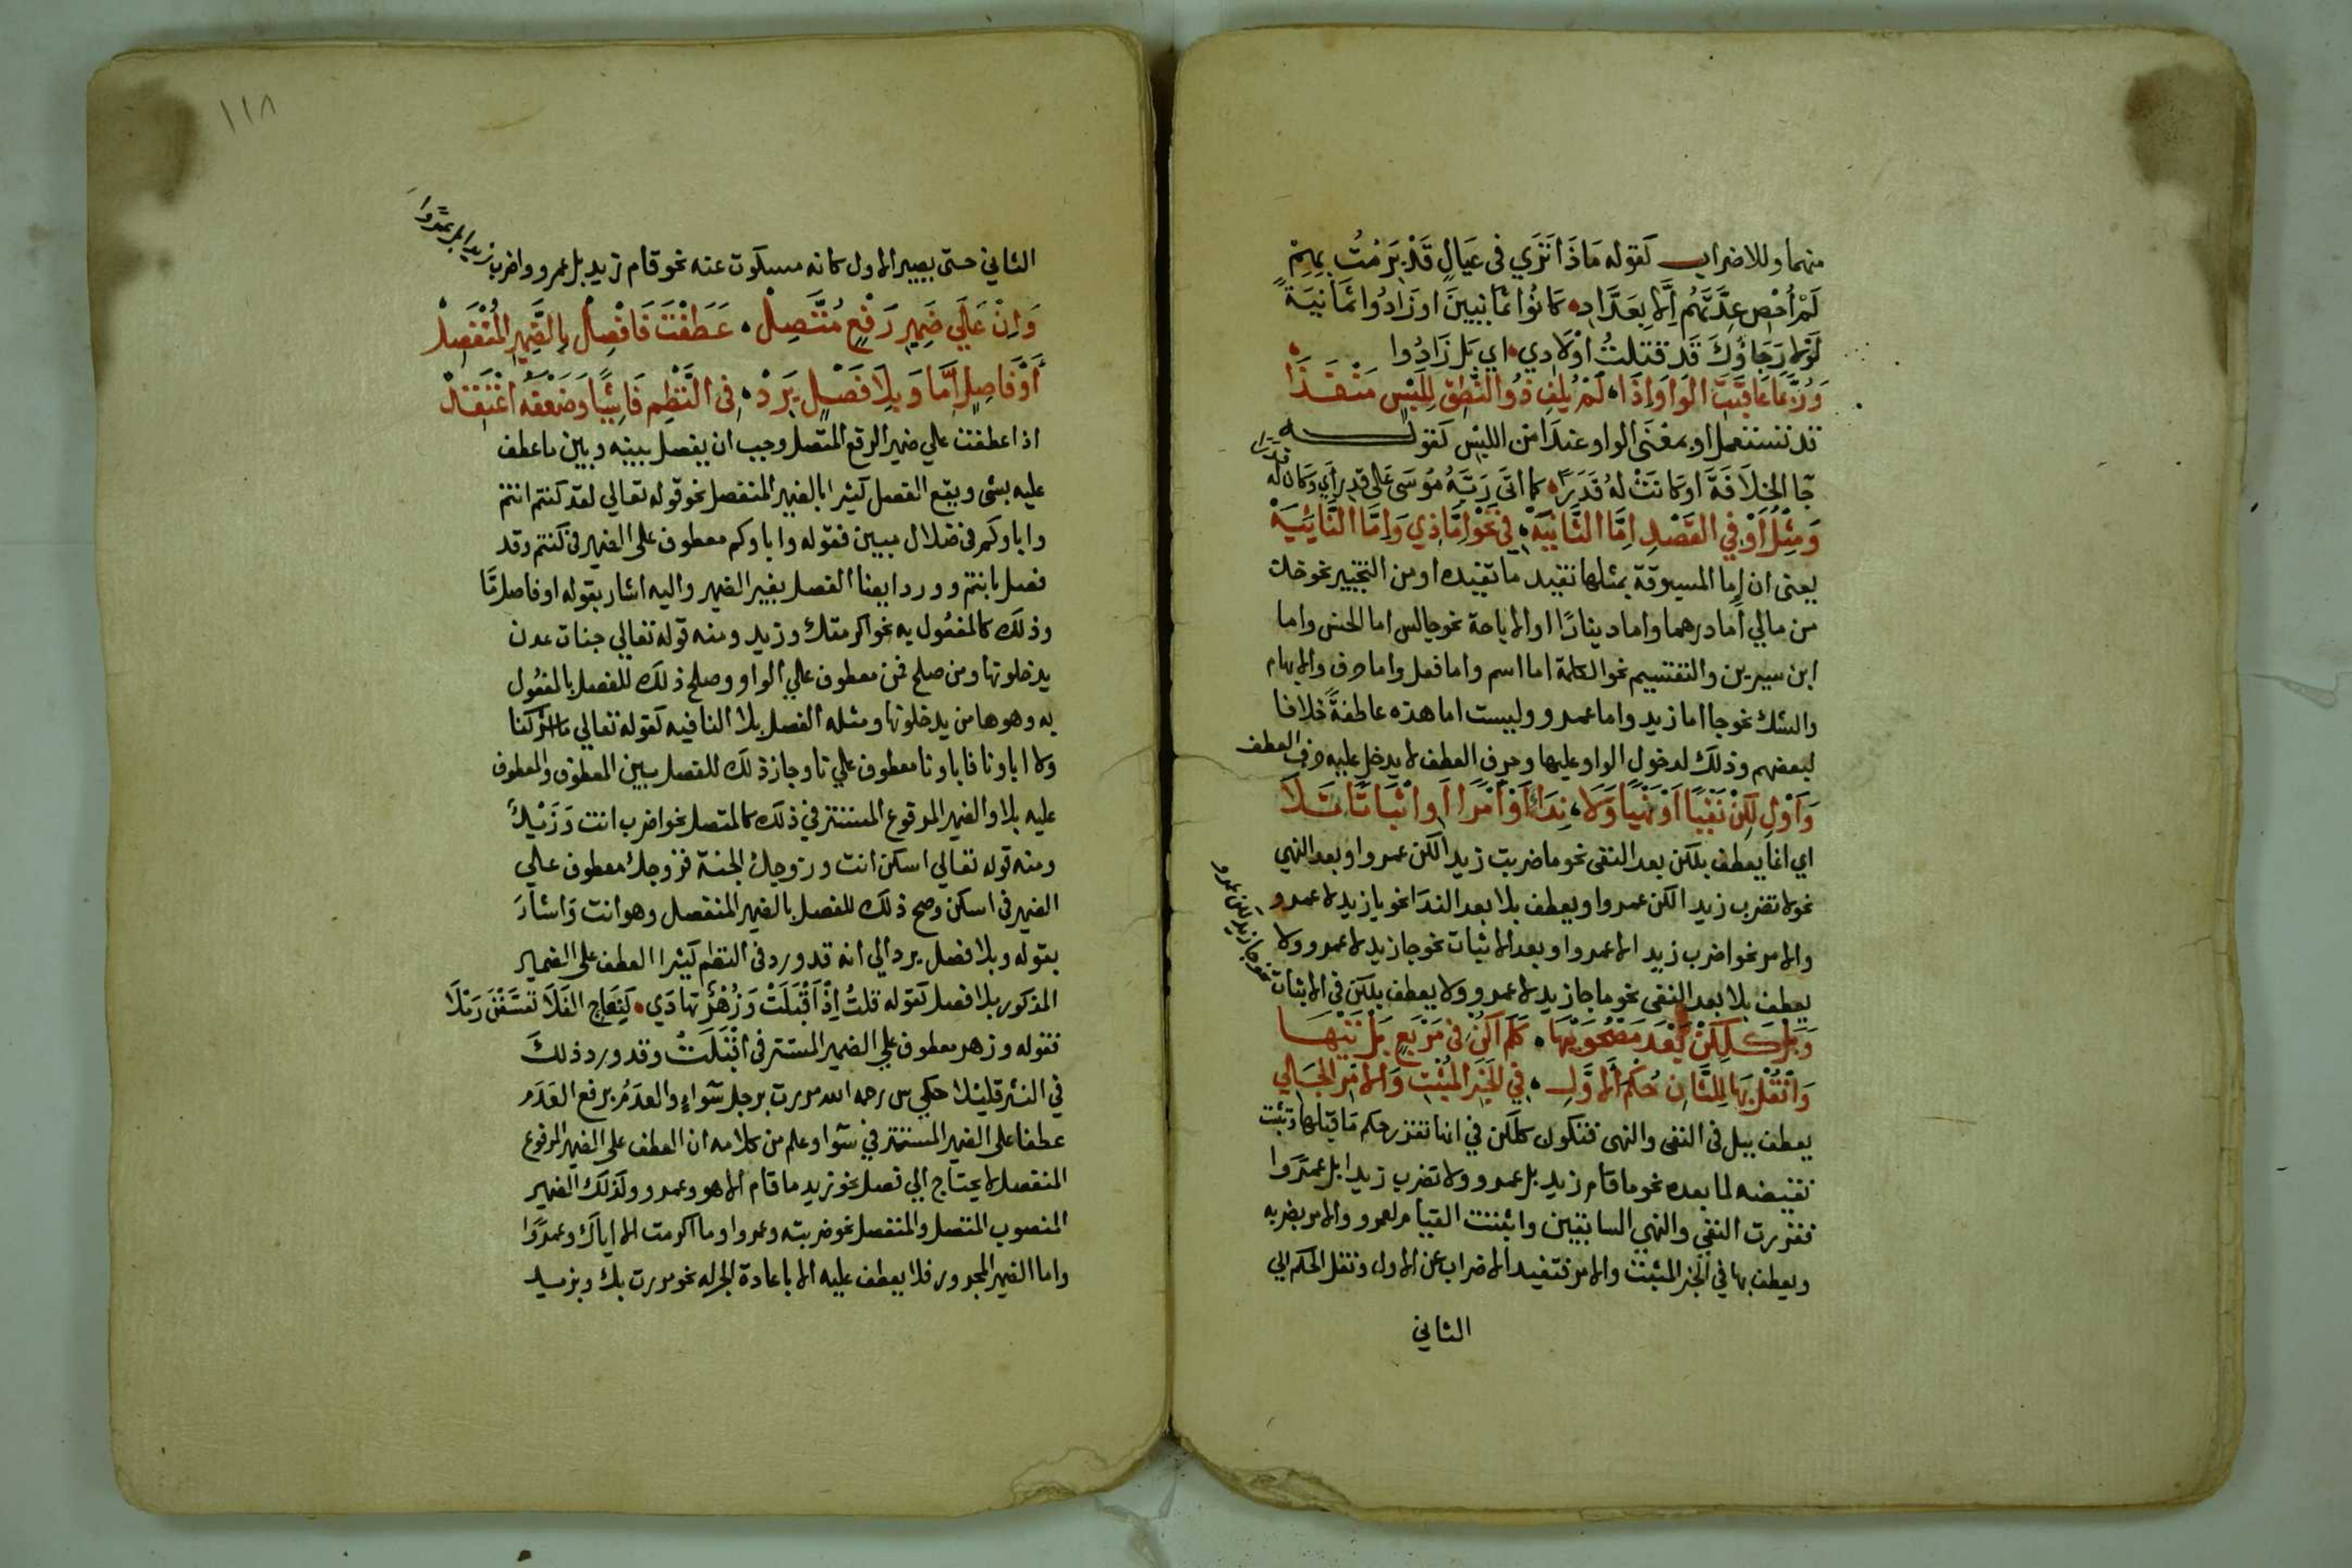 منهما وللاضراب كقوله مَاذَا تَرَي في عِيَالٍ قَدْ بَرِمْتُ بِهِمْ
لَمْ أُحْصِ عِدَّتَهُم اِلّا بِعَدَّادِ كَانُوا ثَمَانِينَ او زَادُوا ثَمَانِيَةً
لَولا رَجَاؤُكَ قَد قتلتُ أوْلَادِي اي بَل زَادُوا
وَرُبَّمَا عَاقَبَتِ الوَاوَ إذَا لَمْ يُلْفِ ذُو النُّطْقِ لِلَبْسٍ مَنْفَذَا
قد تستعمل او بمعْنَى الواو عندَ امن اللبس كقولـــه
جَا الخِلَافَةَ او كَانَتْ لهُ قَدَرًا كما اتَى رَبَّهُ مُوسَى عَلى قدرِ اي وكان له
قدرا
وَمِثْلُ أَوْ في القَصْدِ اِمَّا الثَّانِيَهْ في نَحْوِ اِمَّا ذِي وَاِمَّا النَّائِيَهْ
يعنى ان إما المسبوقة بمثلها تفيد ما تفيده او من التخيير نحو خذ
من مالي أما درهما واما دينارًا او الاباحة نحو جالس اما الحسن واما
ابن سيرين والتقسيم نحو الكلمة اما اسم واما فعل واما حرف والابهام
والشك نحو جا اما زيد واما عمرو وليست اما هذه عاطفةً خلافا
لبعضهم وذلك لدخول الواو عليها وحرف العطف لا يدخل عليه حرف العطف
وَأَوْلِ لَكِنْ نَفْيًا اَوْ نَهْيًا وَلَا نِدَاءً أَوْ أَمْرًا أَوِ اثْبَاتًا تَلَا
اي انما يعطف بلكن بعد النفى نحو ما ضربت زيدا لكن عمروا وبعد النهي
نحو لا تضرب زيدا لكن عمروا ويعطف بلا بعد الندَا نحو يا زيد لا عمرو
والامر نحو اضرب زيد الا عمروا وبعد الاثبات نحو جا زيد لا عمرو ولا
يعطف بلا بعد النفى نحو ما جا زيد لا عمرو ولا يعطف بلكن في الاثبات
نحو جا زيد لكن عمرو
وَبَلْ كَلَكِنْ بَعْدَ مَصْحُوبَيْهَا كَلَمْ أَكُنْ في مَرْبَعٍ بَلْ تَيْهَا
وَانْقُلْ بِهَا لِلثَّانِ حُكْمَ الاوَّلِ في الخَبَرِ المُثْبَتِ وَالامْرِ الجَلِي
يعطف ببل في النفى والنهى فتكون كلكن في انها تقرر حكم مَا قبلها وتثبت
نقيضه لما بعده نحو ما قام زيد بل عمرو ولا تضرب زيدا بل عمرَوا
فقررت النفي والنهي السابقين واثبتت القيام لعمرو والامر بضربه
ويعطف بها في الخبر المثبت والامر فتفيد الاضراب عن الاول وتنقل الحكم الي
الثاني
١١٨
الثاني حتى يصير الاول كانه مسكوت عنه نحو قام زيد بل عمرو واضرب
زيدا بل عمروا
وَاِنْ عَلَي ضَمِيرِ رَفْعٍ مُتَّصِلْ عَطَفْتَ فَافْصِلْ بِالضَّمِيرِ المُنْفَصِلْ
أَوْ فَاصِلٍ اَمَّا وَبِلَا فَصْلٍ يَرِدْ في النَّظْمِ فَاشِيًا وَضَعْفَهُ اعْتَقِدْ
اذا عطفت علي ضمير الرفع المتصل وجب ان يفصل بينه وبين ما عطف
عليه بشى ويقع الفصل كثيرا بالضمير المنفصل نحو قوله تعالي لقد كنتم انتم
واباوكم في ضلال مبين فقوله واباوكم معطوف على الضمير في كنتم وقد
فصل بانتم وورد ايضا الفصل بغير الضمير واليه اشار بقوله او فاصل مَّا
وذلك كالمفعُول به نحو اكرمتك وزيد ومنه قوله تعالي جنات عدن
يدخلونها ومن صلح فمن معطوف علي الواو وصلح ذلك للفصل بالمفعُول
به وهو ها من يدخلونها ومثله الفصل بلا النافيه كقوله تعالي ما اشركنا
ولا اباونا فاباونا معطوف علي نا وجاز ذلك للفصل بين المعطوف والمعطوف
عليه بلا والضمير المرفوع المستتر في ذلك كالمتصل نحو اضرب انت وَزَيْدٌ
ومنه قوله تعالي اسكن انت وزوجك الجنة فزوجك معطوف علي
الضمير في اسكن وصح ذلك للفصل بالضمير المنفصل وهو انت وَاشارَ
بقوله وبلا فصل يرد الي انه قد ورد في النظم كثيرا العطف على الضمير
المذكور بلا فصل كقوله قلتُ إِذْ اَقْبَلَتْ وَزُهْرٌ تهادَي كَنِعَاجِ الفَلَا تَعَسَّفْنَ رَمْلَا
فقوله وزهر معطوف علي الضمير المستتر في اقْبَلَتْ وقد ورد ذلك
في النثر قليلا حكي س رحمه الله مررت برجل سَواءٍ والعدَمُ برفع العَدَم
عطفا على الضمير المستتر في سَوا وعلم من كلامه ان العطف على الضمير المرفوع
المنفصل لا يحتاج الي فصل نحو زيد ما قام الا هو وعمرو وكذلك الضمير
المنصوب المتصل والمنفصل نحو ضربته وعمروا وما اكرمت الا اياك وعمرًوا
واما الضمير المجرور فلا يعطف عليه الا باعادة الجر له نحو مررت بك وبزيد